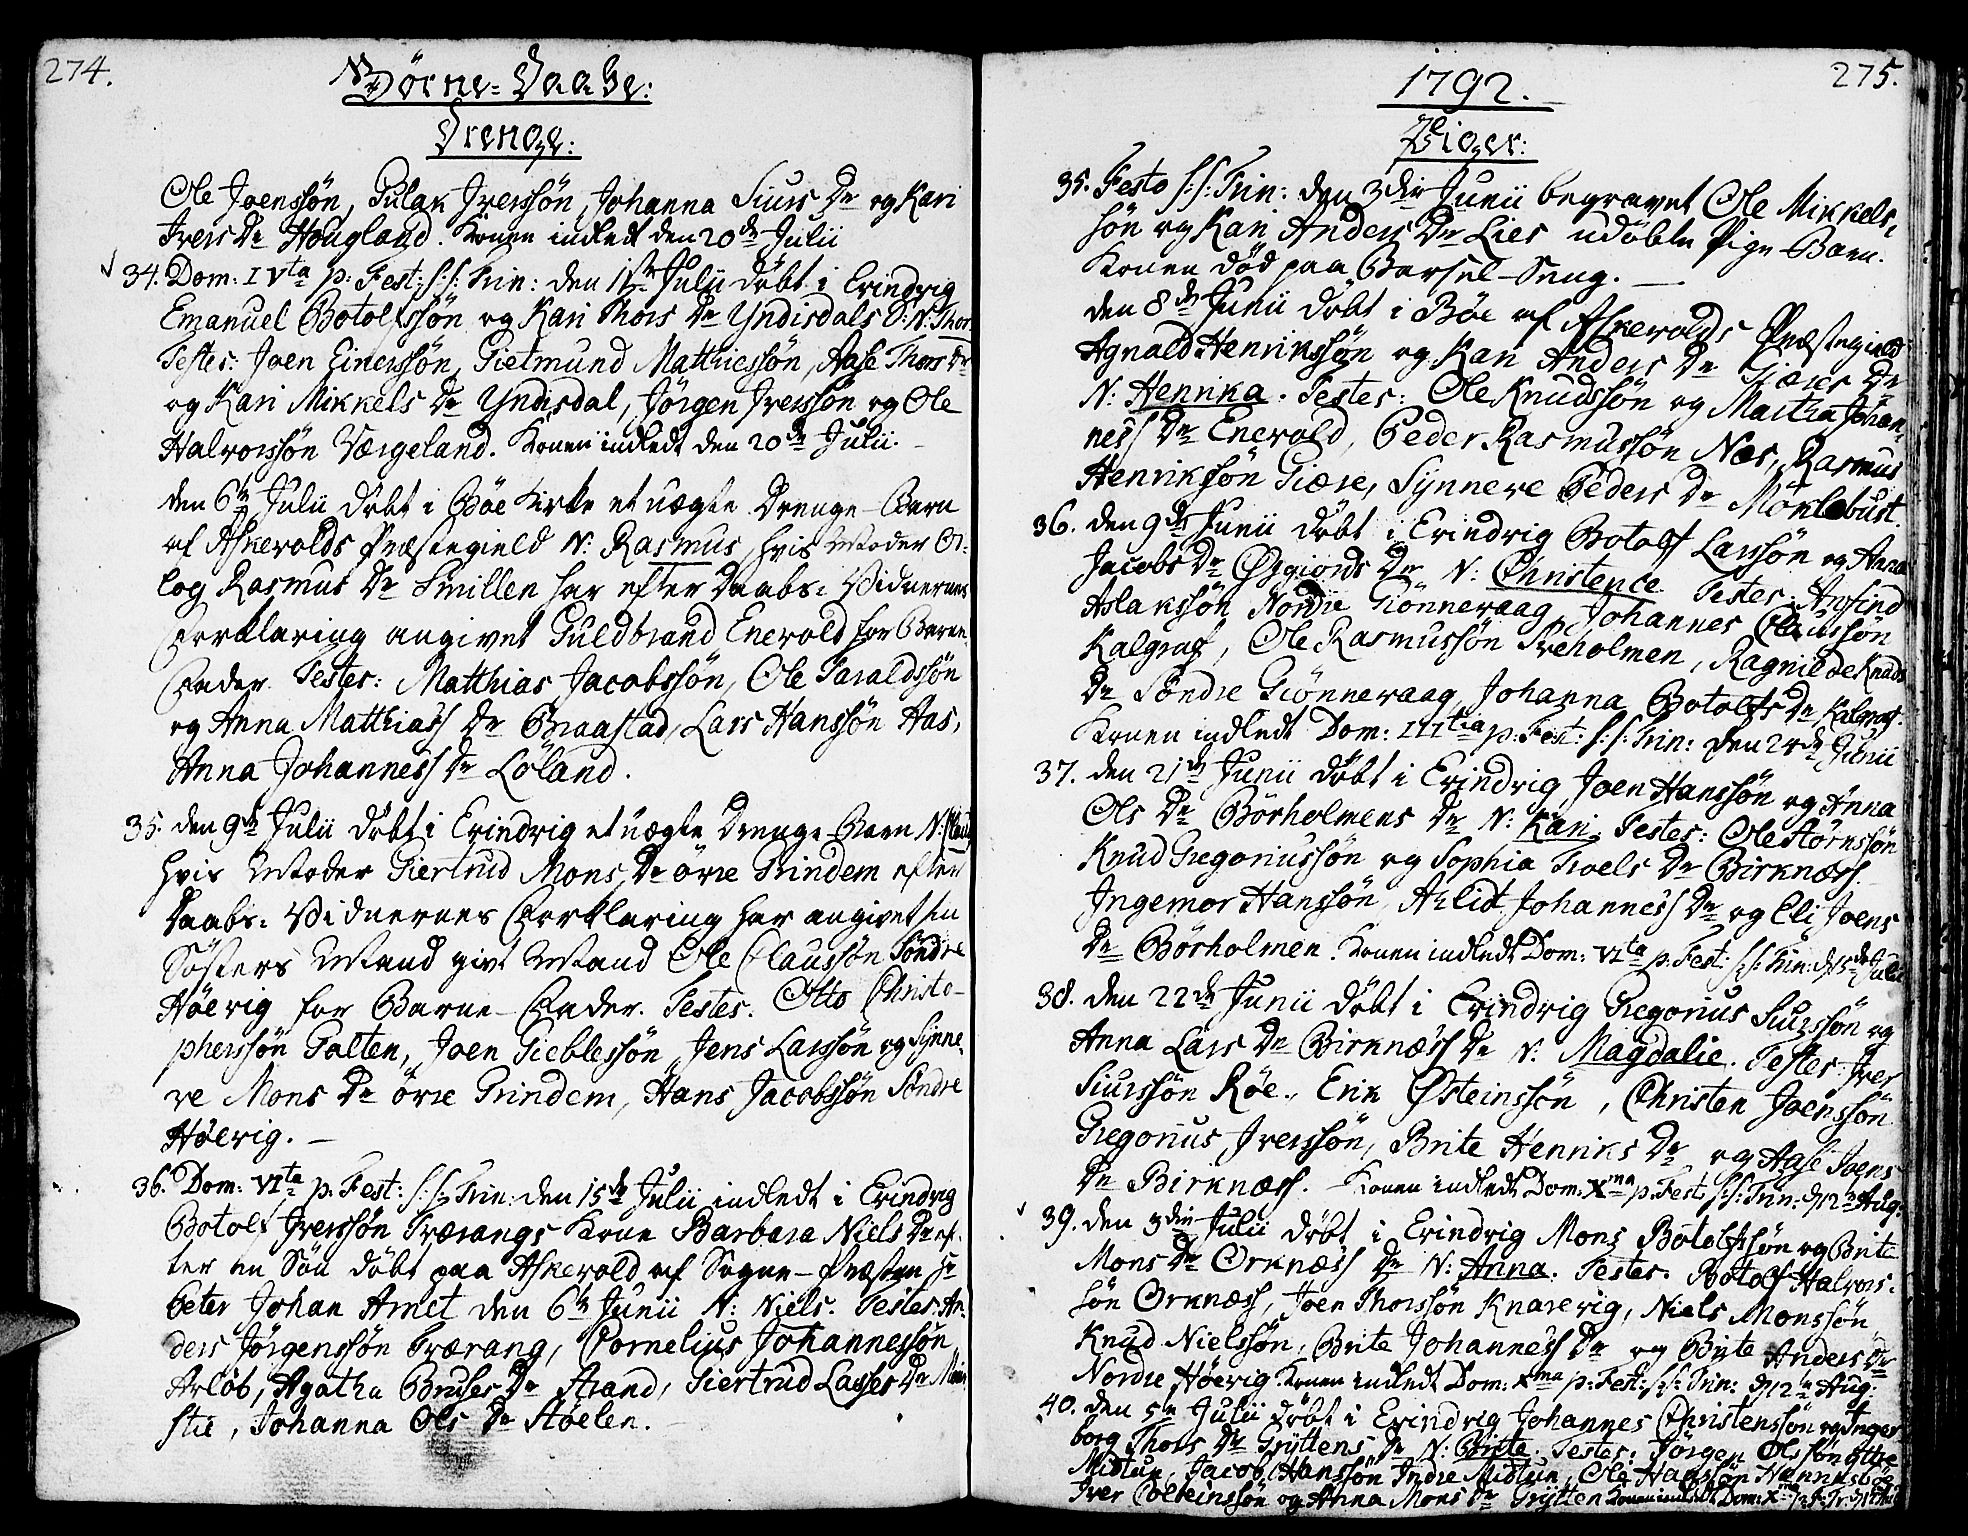 274.
Börne-Daabe:
Drenge:
Ole Joenssön, Gulak Iverssön, Johanna Siurs Dr og Kari
Ivers Dr Hougland. Konen indledt den 20de Julii
34. Dom: IVta p: Fest: s:s: Trin: den 1ste Julii döbt i Evindvig
Emanuel Botolfssön og Kari Thors Dr Yndisdals S: N: Thor
Testes: Joen Einerssön, Gietmund Matthiessön, Aase Thors Dr
og Kari Mikkels Dr Yndisdal, Jörgen Iverssön og Ole
Halvorssön Værgeland. Konen indledt den 20de Julii.
den 6te Julii döbt i Böe Kirke et uægte Drenge-Barn
af Askevolds Præstegield N: Rasmus, hvis Moder Ol-
log Rasmus Dr Smillen har efter Daabs-Vidnernes
Forklaring angivet Guldbrand Enevold for Barne-
Fader. Testes: Matthias Jacobssön, Ole Taraldssön
og Anna Matthiass Dr Braastad, Lars Hanssön Aas,
Anna Johanness Dr Löland.
35. den 9de Julii döbt i Evindvig et uægte Drenge-Barn N: Claus
hvis Moder Giertrud Mons Dr övre Grindem efter
Daabs-Vidnernes Forklaring har angivet sin
Sösters Mand givt Mand Ole Claussön Söndre
Höevig for Barne-Fader. Testes. Otto Christo-
pherssön Galten, Joen Gieblessön, Jens Larssön og Synne-
ve Mons Dr övre Grindem, Hans Jacobssön Söndre
Höevig.
36. Dom: VIta p: Fest: s:s: Trin: den 15de Julii indledt i Evindvig
Botolf Iverssön Trærangs Kone Barbara Niels Dr ef-
ter en Sön döbt paa Askevold af Sogne-Præsten Hr
Peter Johan Arnet den 6te Junii N: Niels. Testes: An-
ders Jörgenssön Trærang, Cornelius Johannessön
Arlöb, Agatha Bruses Dr Strand, Giertrud Lasses Dr
stie, Johanna Ols Dr Stöelen.
1792.
275.
Piger:
35. Festo s:s: Trin: den 3die Junii begravet Ole Mikkels-
sön og Kari Anders Dr Lies udöbte Pige-Barn.
Konen död paa Barsel-Seng.
den 8de Junii döbt i Böe af Askevolds Præstegield
Agnald Henrikssön og Kari Anders Dr Giæres Dr
N: Henrika. Testes: Ole Knudssön og Martha Johan-
ness Dr Enevold, Peder Rasmussön Nes, Rasmus
Henrikssön Giære, Synneve Peders Dr Möklebust.
36. den 9de Junii döbt i Evindvig Botolf Larssön og Anna
Jacobs Dr Öxgiords Dr N: Christence. Testes: Arfind
Aslakssön Nordre Giönneraag, Johannes Claussön
Kalgraf, Ole Rasmussön Treholmen, Ragnilde Knuds
Dr Söndre Giönneraag, Johanna Botolfs Dr Kalgraf.
Konen indledt Dom: IIItia p: Fest: s:s: Trin: den 24de Junii
37. den 21de Junii döbt i Evindvig Joen Hanssön og Anna
Ols Dr Börholmens Dr N: Kari. Testes: Ole Störkssön
Knud Gregoriussön og Sophia Troels Dr Birknæss
Ingemor Hanssön, Arlid Johanness Dr og Eli Joens
Dr Börholmen. Konen indledt Dom: VIta p: Fest: s:s: Trin: d 15de Julii
38. den 22de Junii döbt i Evindvig Gregorius Siurssön og
Anna Lars Dr Birknæss Dr N: Magdalie. Testes: Iver
Siurssön Röe, Erik Østeinssön, Christen Joenssön
Gregorius Iverssön, Brite Henriks Dr og Aase Joens
Dr Birknæss. Konen indledt Dom: Xma p: Fest s:s: Trin: d 12te Aug:
39. den 3die Julii döbt i Evindvig Mons Botolfssön og Brite
Mons Dr Orknæss Dr N: Anna. Testes: Botolf Halvors-
sön Orknæss, Joen Thorssön Knarevig, Niels Monssön
Knud Nielssön, Brite Johanness Dr og Brite Anders Dr
Nordre Höevig. Konen indledt Dom: Xma p: Fest: s:s: Trin: d 12te Aug:
40. den 5te Julii döbt i Evindvig Johannes Christenssön og Inger
borg Thors Dr Gryttens Dr N: Brite. Testes: Jörgen Olssön
Midtun, Jacob Hanssön Indre Midtun, Ole Hanssön Hennusböe
Iver Polteinssön og Anna Mons Dr Grytten Konen indledt Dom: Xma